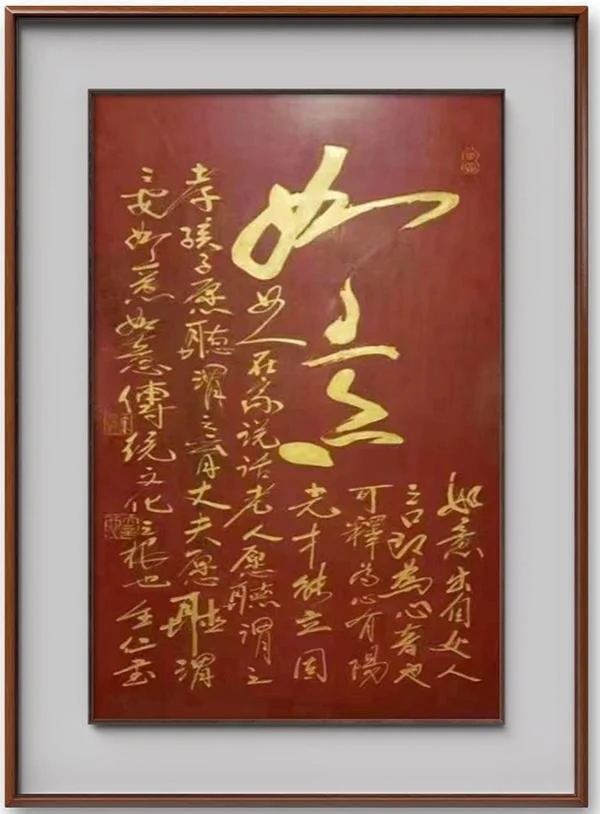 如意
如意出自女人
之口即為心者也
可釋為心有陽
光才能立
女人在家说话老人愿聽谓之
孝孩子愿聽谓之育丈夫愿聽谓
之安如意如意傳统文化之根也